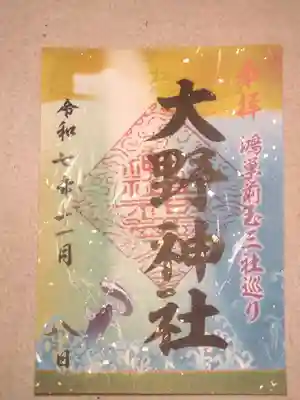 奉拝
鴻巣前玉三社巡り
大野神社
令和七年十一月
八日